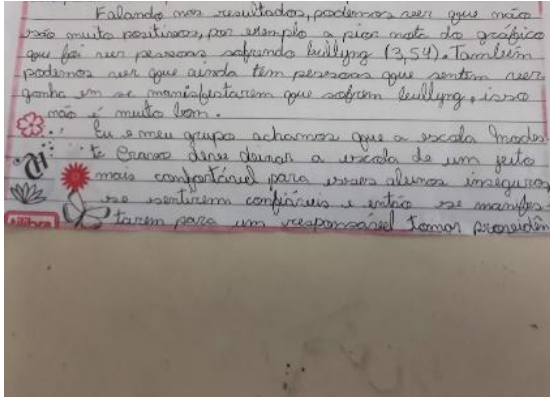 Falando nos resultados, podemos ver que não
são muito positivos, por exemplo a pior nota do gráfico
que foi ver pessoas sofrendo bullyng (3,54). Também
podemos ver que ainda tem pessoas que sentem ver
gonha em se manisfestarem que sofrem bullyng, isso
não é muito bom.
Eu e meu grupo achamos que a escola Modes
te Eranco deve deixar a escola de um jeito
mais confortável para esses alunos inseguros
se sentirem confiáveis e então se manifes-
tarem para um responsável tomar providên
tilibra